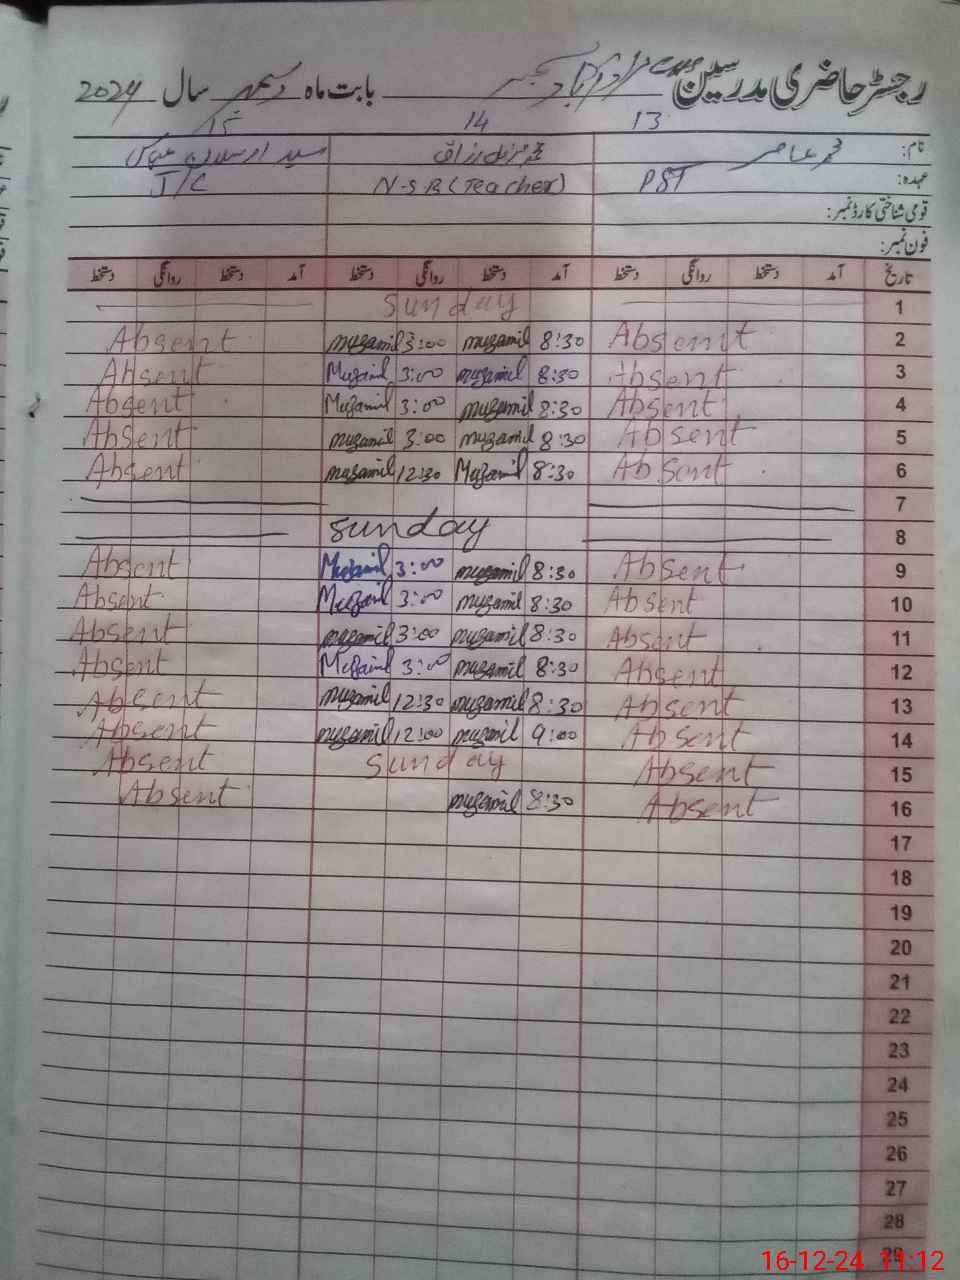 رجسٹر حاضری مدرسین بابت ماہ دسمبر سال 2024
13 14 15
نام: محمد عاصر محمد مزمل رزاق سید ارسلان عباس
عہدہ: PST N-S-B (Teacher) J/C
قومی شناختی کارڈ نمبر:
فون نمبر:
تاریخ آمد دستخط روانگی دستخط آمد دستخط روانگی دستخط آمد دستخط روانگی دستخط
Sunday 1
Absent muzamil 3:00 muzamil 8:30 Absent 2
Absent Muzamil 3:00 muzamil 8:30 Absent 3
Absent Muzamil 3:00 muzamil 8:30 Absent 4
Absent muzamil 3:00 muzamil 8:30 Absent 5
Absent muzamil 12:30 Muzamil 8:30 Absent 6
7
Sunday 8
Absent Muzamil 3:00 muzamil 8:30 Absent 9
Absent Muzamil 3:00 muzamil 8:30 Absent 10
Absent muzamil 3:00 muzamil 8:30 Absent 11
Absent Muzamil 3:00 muzamil 8:30 Absent 12
Absent muzamil 12:30 muzamil 8:30 Absent 13
Absent muzamil 12:00 muzamil 9:00 Absent 14
Absent Sunday Absent 15
Absent muzamil 8:30 Absent 16
17
18
19
20
21
22
23
24
25
26
27
28
29
16-12-24 11:12